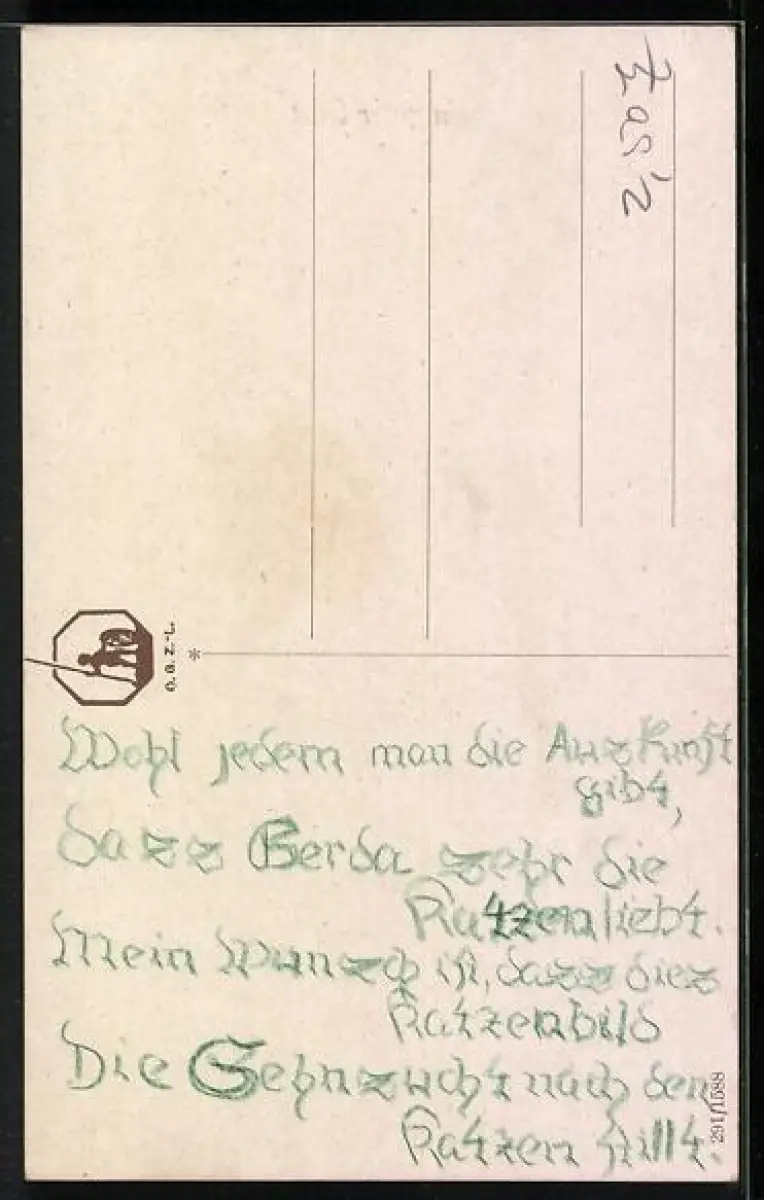 O.G.Z.-L.
Wohl jedem man die Auskunft
gibt,
dass Gerda sehr die
Katzen liebt.
Mein Wunsch ist, dass dies
Katzenbild
Die Sehnsucht nach den
Katzen stillt.
291/1588